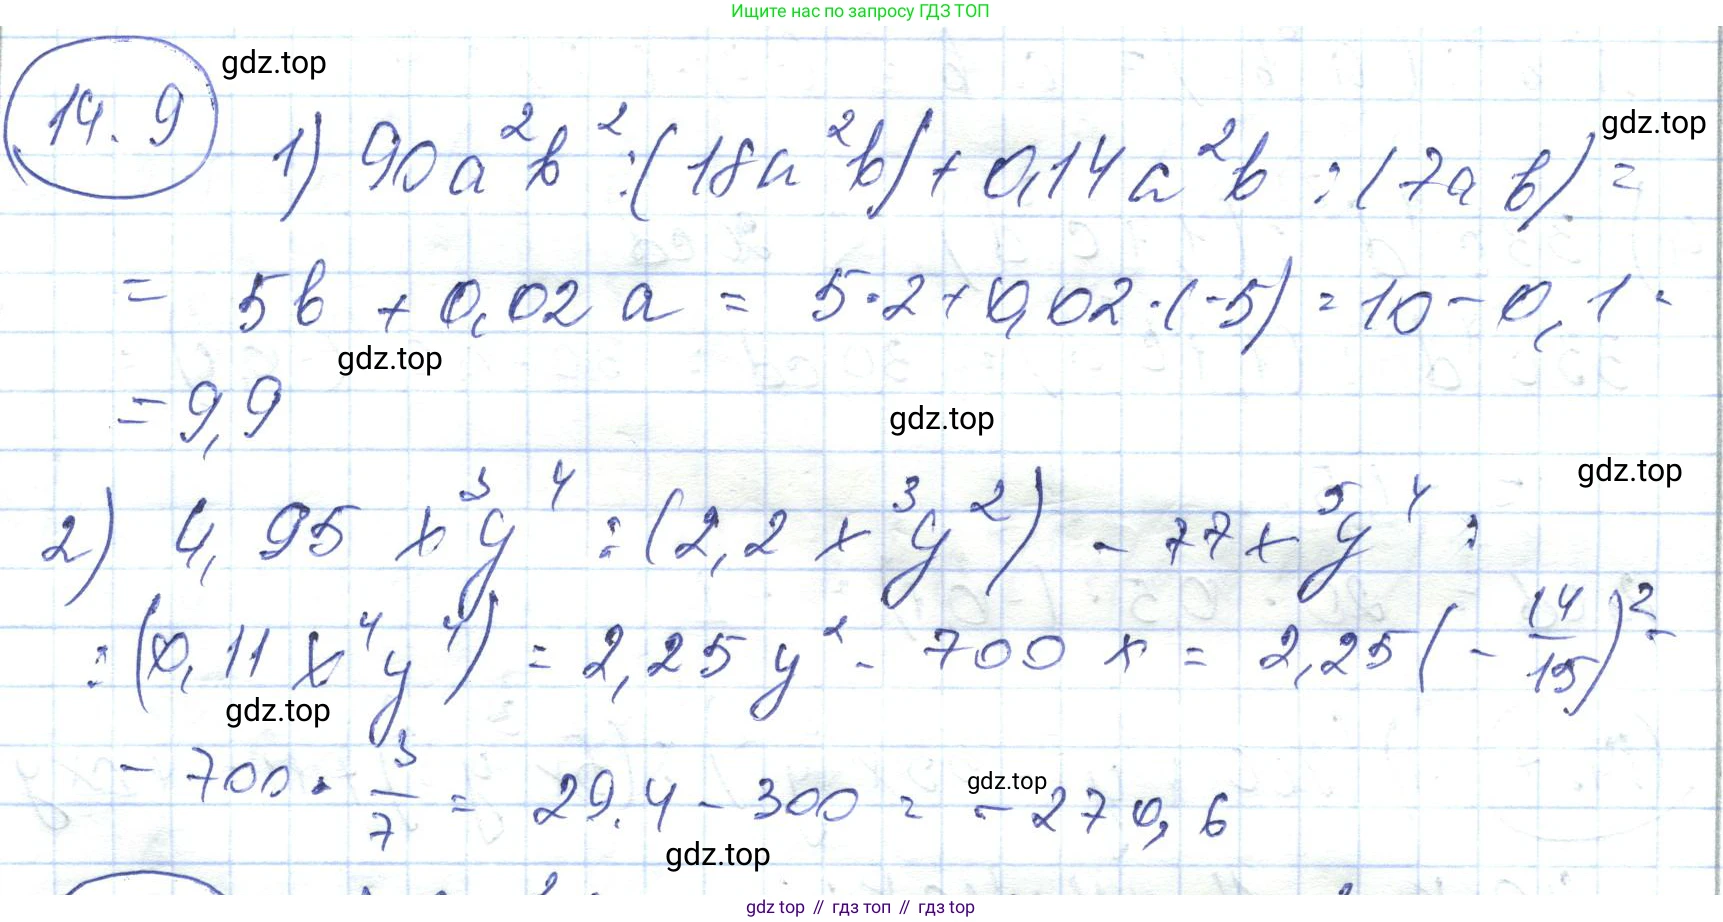 Ищите нас по запросу ГДЗ ТОП
14.9
gdz.top
gdz.top
1) 90a²b² : (18a²b) + 0,14a²b : (7ab) =
= 5b + 0,02a = 5·2 + 0,02·(-5) = 10 - 0,1 =
gdz.top
= 9,9
gdz.top
gdz.top
2) 4,95x³y⁴ : (2,2x³y²) - 77x⁵y⁴ :
: (0,11x⁴y⁴) = 2,25y² - 700x = 2,25(-14/15)² -
gdz.top
- 700 · 3/7 = 29.4 - 300 = -270,6
gdz.top
gdz.top
gdz top // гдз топ // gdz top